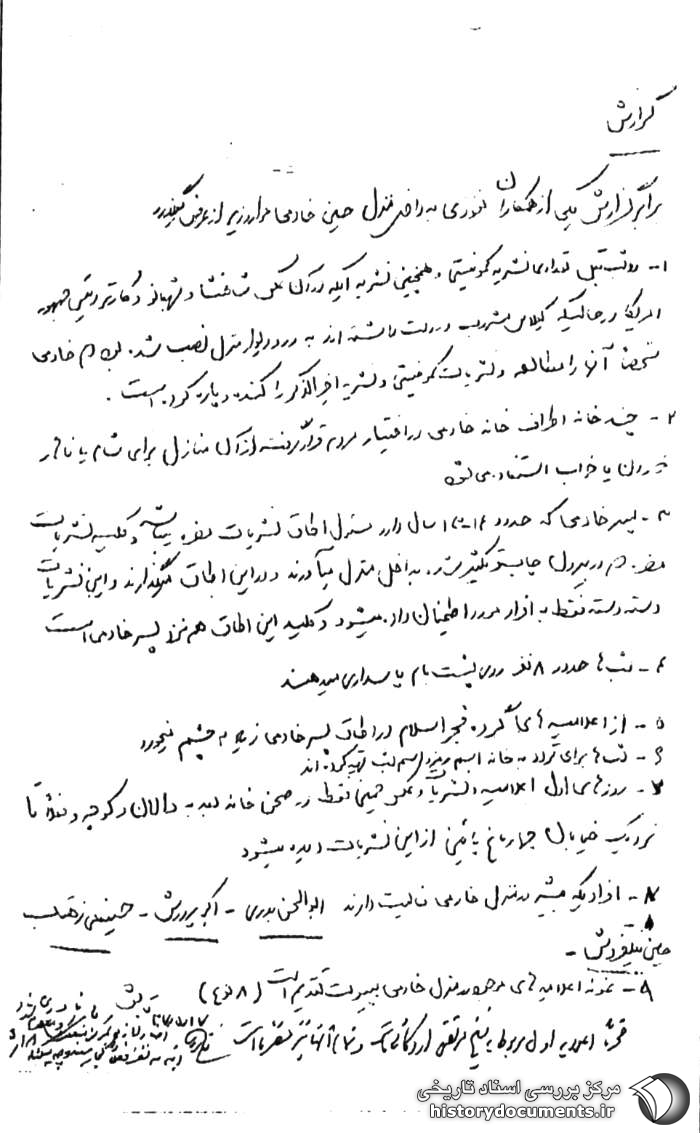 گزارش
برابر گزارش یکی از همکاران نفوذی به داخل منزل حسین خادمی موارد زیر از عرض میگذرد
۱- دو شب قبل تعدادی نشریه کمونیستی و همچنین نشریه‌ایکه در آن عکس شاهنشاه و شهبانو و کارتر رئیس جمهور
امریکا در حالیکه گیلاس مشروب در دست داشته‌اند به در و دیوار منزل نصب شده بود که خادمی
شخصاً آنها را مطالعه و نشریات کمونیستی و نشریه اخیرالذکر را کنده و پاره کرده است.
۲- چند خانه اطراف خانه خادمی در اختیار مردم قرار گرفته از آن منازل برای شام یا ناهار
خوردن یا خواب استفاده می‌شود
۳- پسر خادمی که حدود ۱۴-۱۳ سال دارد مسئول اطاق نشریات مضره میباشد و کلیه نشریات
مضره که در بیرون چاپ و تکثیر میشود به داخل منزل میآورند و در این اطاق میگذارند و این نشریات
دسته دسته فقط به افراد مورد اطمینان داده میشود و کلید این اطاق هم نزد پسر خادمی است
۴- شب‌ها حدود ۸ نفر روی پشت بام پاسداری میدهند
۵- از اعلامیه‌های گروه فجر اسلام در اطاق پسر خادمی زیاد به چشم میخورد
۶- شب‌ها برای تردد به خانه اسم رمز و اسم شب تهیه کرده‌اند
۷- روزهای اول اعلامیه و نشریات و عکس خمینی فقط در صحن خانه بعد به دالان و کوچه و فعلاً تا
نزدیک خیابان چهارباغ پائین از این نشریات دیده میشود
۸- افرادیکه همیشه در منزل خادمی فعالیت دارند ابوالحسن بدری - اکبر پرورش - حسینعلی
حسین -
۹- نمونه اعلامیه‌های موجود در منزل خادمی بپیوست تقدیم است (۸ نوع)
ضمناً اعلامیه اول مربوط به
مرکز بررسی اسناد تاریخی
historydocuments.ir